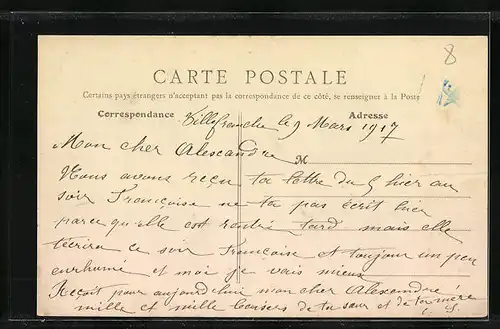 8
CARTE POSTALE
Certains pays étrangers n'acceptant pas la correspondance de ce côté, se renseigner à la Poste
Correspondance Adresse
Villefranche le 9 Mars 1917
Mon cher Alexandre
M
Nous avons reçu ta lettre du 5 hier au
soir Françoise ne ta pas écrit hier
parce qu'elle est rentré tard mais elle
técrira ce soir Francoise et toujour un peu
enrhumé et moi je vais mieux
Reçoit pour aujourd'hui mon cher Alexandre
mille et mille baisers de ta sœur et de ta mère